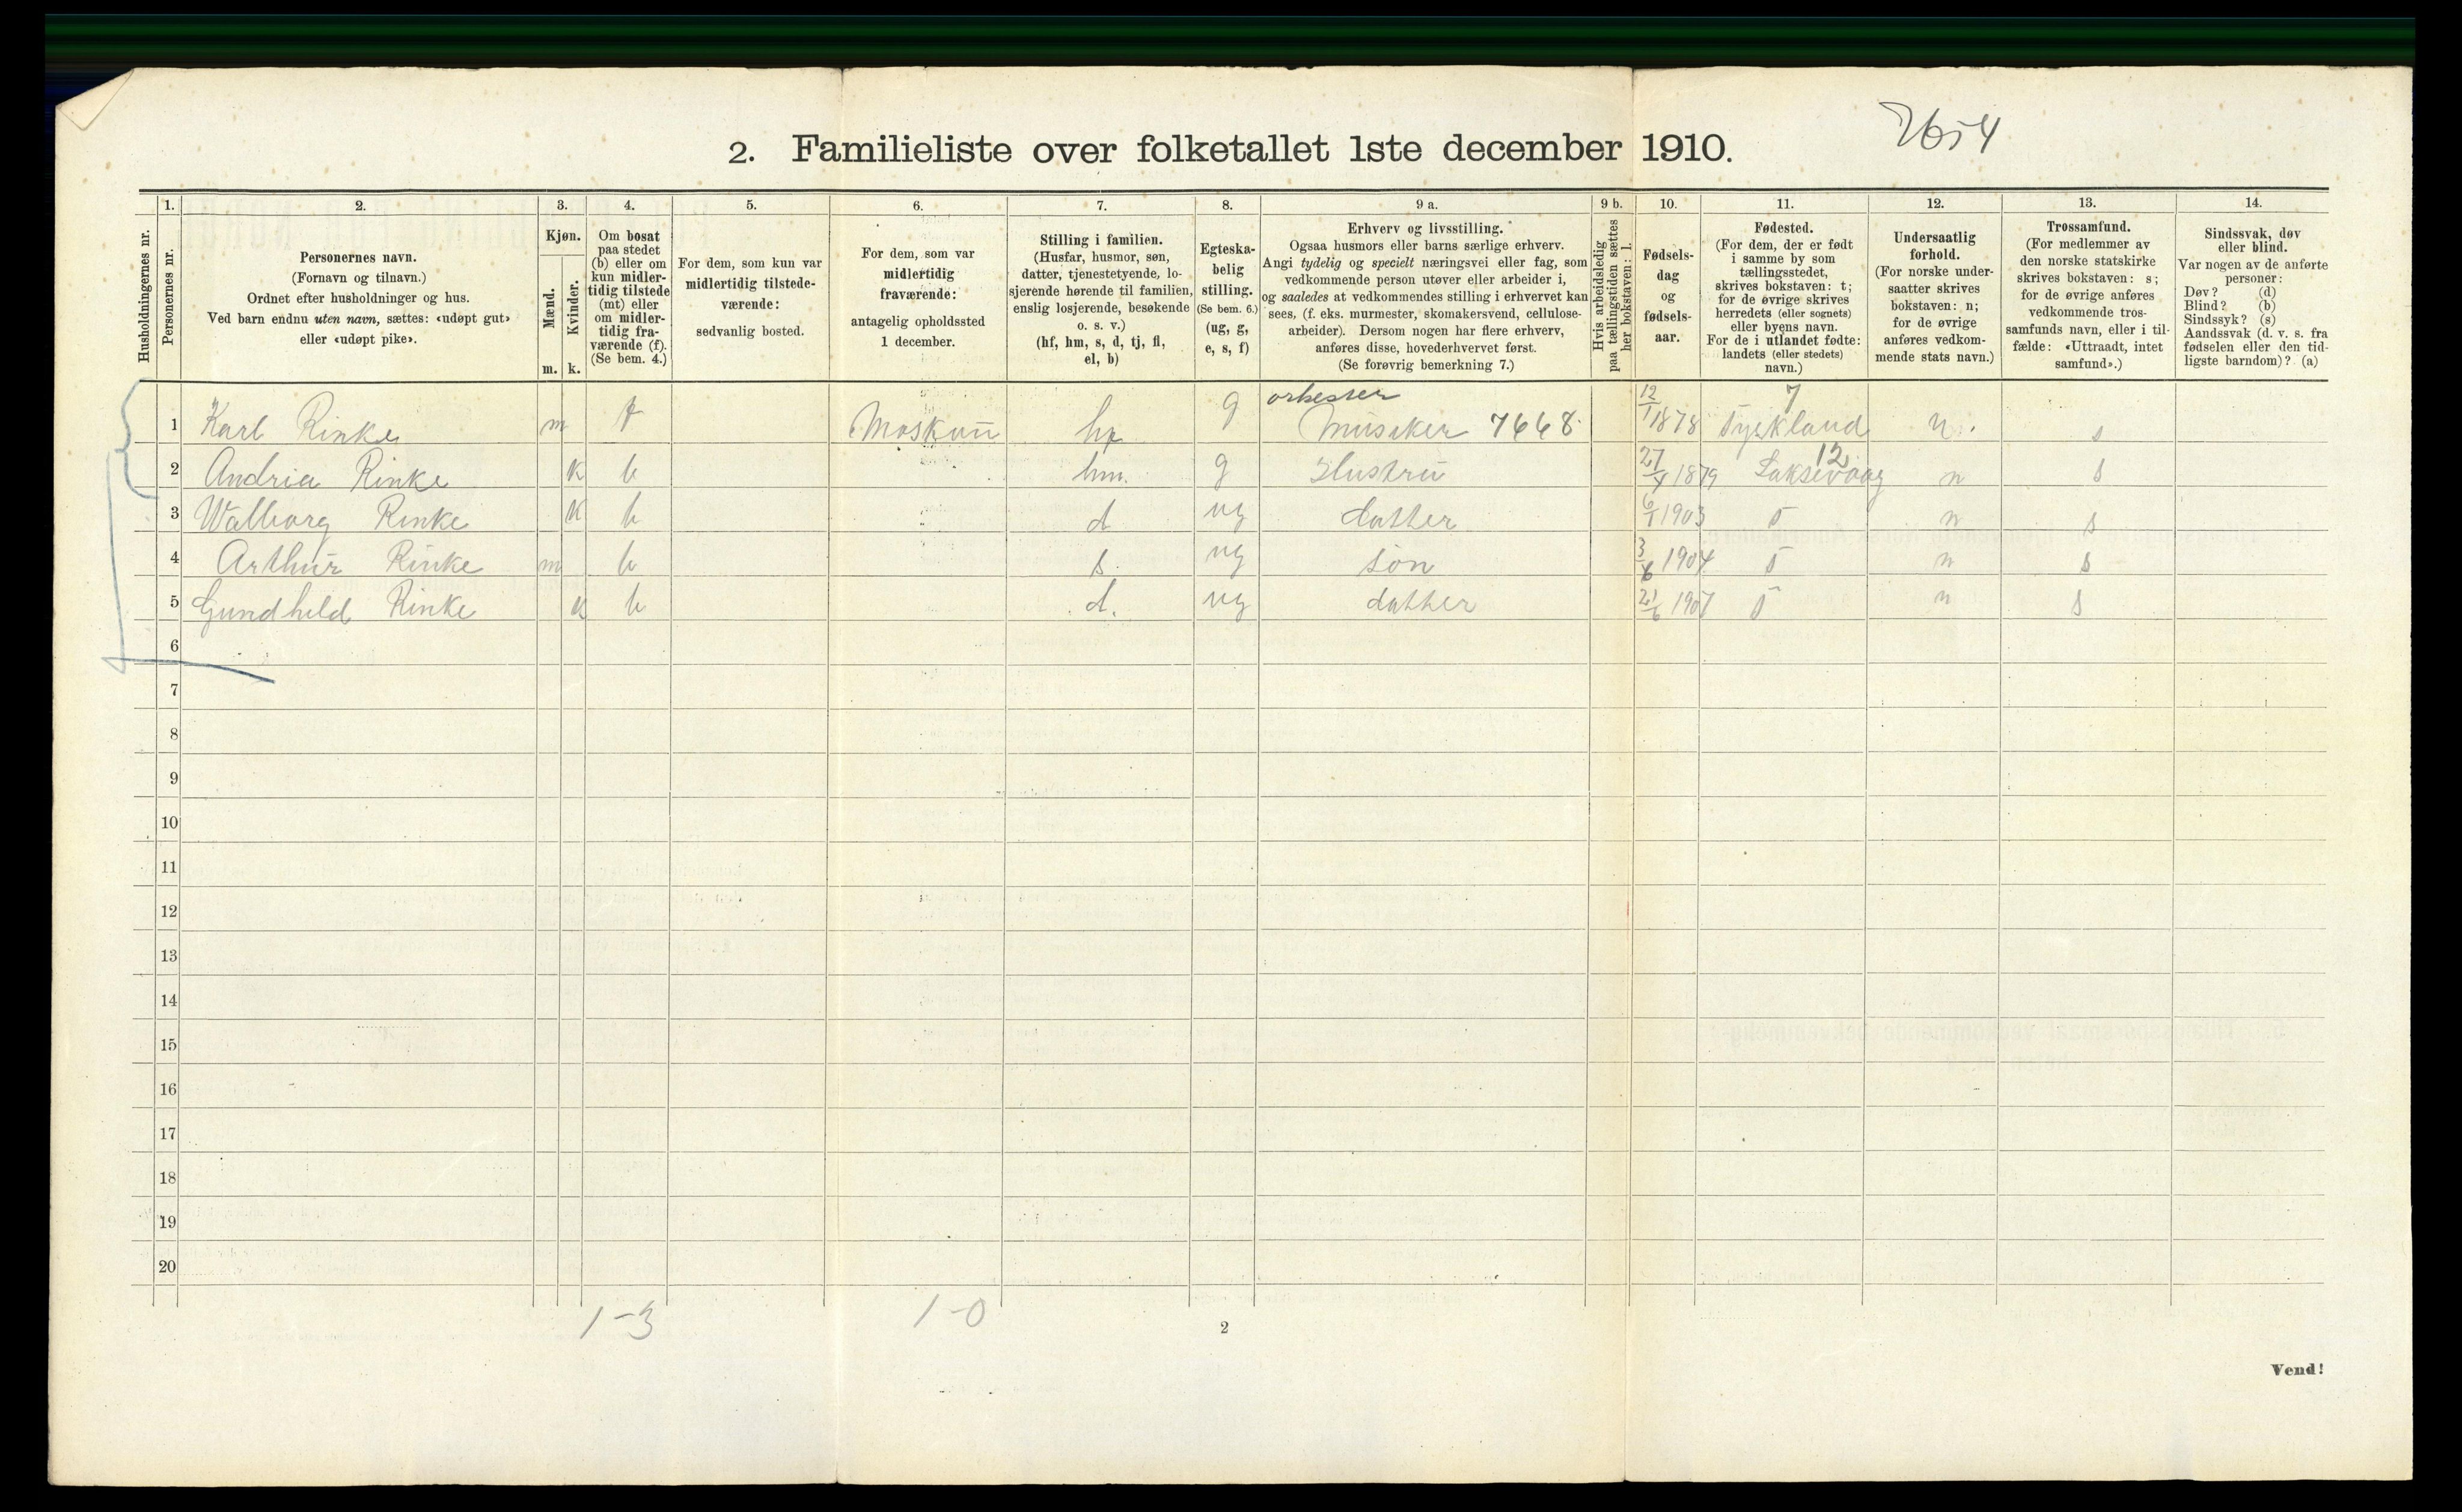 7654
2. Familieliste over folketallet 1ste december 1910.
Husholdningernes nr.
1.
Personernes nr.
2.
Personernes navn.
(Fornavn og tilnavn.)
Ordnet efter husholdninger og hus.
Ved barn endnu uten navn, sættes: «udøpt gut»
eller «udøpt pike».
3.
Kjøn.
Mænd.
Kvinder.
m. k.
4.
Om bosat
paa stedet
(b) eller om
kun midler-
tidig tilstede
(mt) eller
om midler-
tidig fra-
værende (f).
(Se bem. 4.)
5.
For dem, som kun var
midlertidig tilstede-
værende:
sedvanlig bosted.
6.
For dem, som var
midlertidig
fraværende:
antagelig opholdssted
1 december.
7.
Stilling i familien.
(Husfar, husmor, søn,
datter, tjenestetyende, lo-
sjerende hørende til familien,
enslig losjerende, besøkende
o. s. v.)
(hf, hm, s, d, tj, fl,
el, b)
8.
Egteska-
belig
stilling.
(Se bem. 6.)
(ug, g,
e, s, f)
9 a.
Erhverv og livsstilling.
Ogsaa husmors eller barns særlige erhverv.
Angi tydelig og specielt næringsvei eller fag, som
vedkommende person utøver eller arbeider i,
og saaledes at vedkommendes stilling i erhvervet kan
sees, (f. eks. murmester, skomakersvend, cellulose-
arbeider). Dersom nogen har flere erhverv,
anføres disse, hovederhvervet først.
(Se forøvrig bemerkning 7.)
9 b.
Hvis arbeidsledig
paa tællingstiden sættes
her bokstaven: l.
10.
Fødsels-
dag
og
fødsels-
aar.
11.
Fødested.
(For dem, der er født
i samme by som
tællingsstedet,
skrives bokstaven: t;
for de øvrige skrives
herredets (eller sognets)
eller byens navn.
For de i utlandet fødte:
landets (eller stedets)
navn.)
12.
Undersaatlig
forhold.
(For norske under-
saatter skrives
bokstaven: n;
for de øvrige
anføres vedkom-
mende stats navn.)
13.
Trossamfund.
(For medlemmer av
den norske statskirke
skrives bokstaven: s;
for de øvrige anføres
vedkommende tros-
samfunds navn, eller i til-
fælde: «Uttraadt, intet
samfund».)
14.
Sindssvak, døv
eller blind.
Var nogen av de anførte
personer:
Døv? (d)
Blind? (b)
Sindssyk? (s)
Aandssvak (d. v. s. fra
fødselen eller den tid-
ligste barndom)? (a)
orkester 7
1 Karl Rinke m f Moskau hf g Musiker 7668 12/1 1878 Tyskland n. s
12
2 Andria Rinke k b hm. g Hustru 27/4 1879 Laksevaag n s
3 Walborg Rinke k b d ug datter 6/1 1903 T n s
4 Arthur Rinke m b s. ug søn 3/6 1904 T n s
5 Gundhild Rinke k b d. ug datter 21/6 1907 T n s
6
7
8
9
10
11
12
13
14
15
16
17
18
19
20
1-3 1-0
2
Vend!